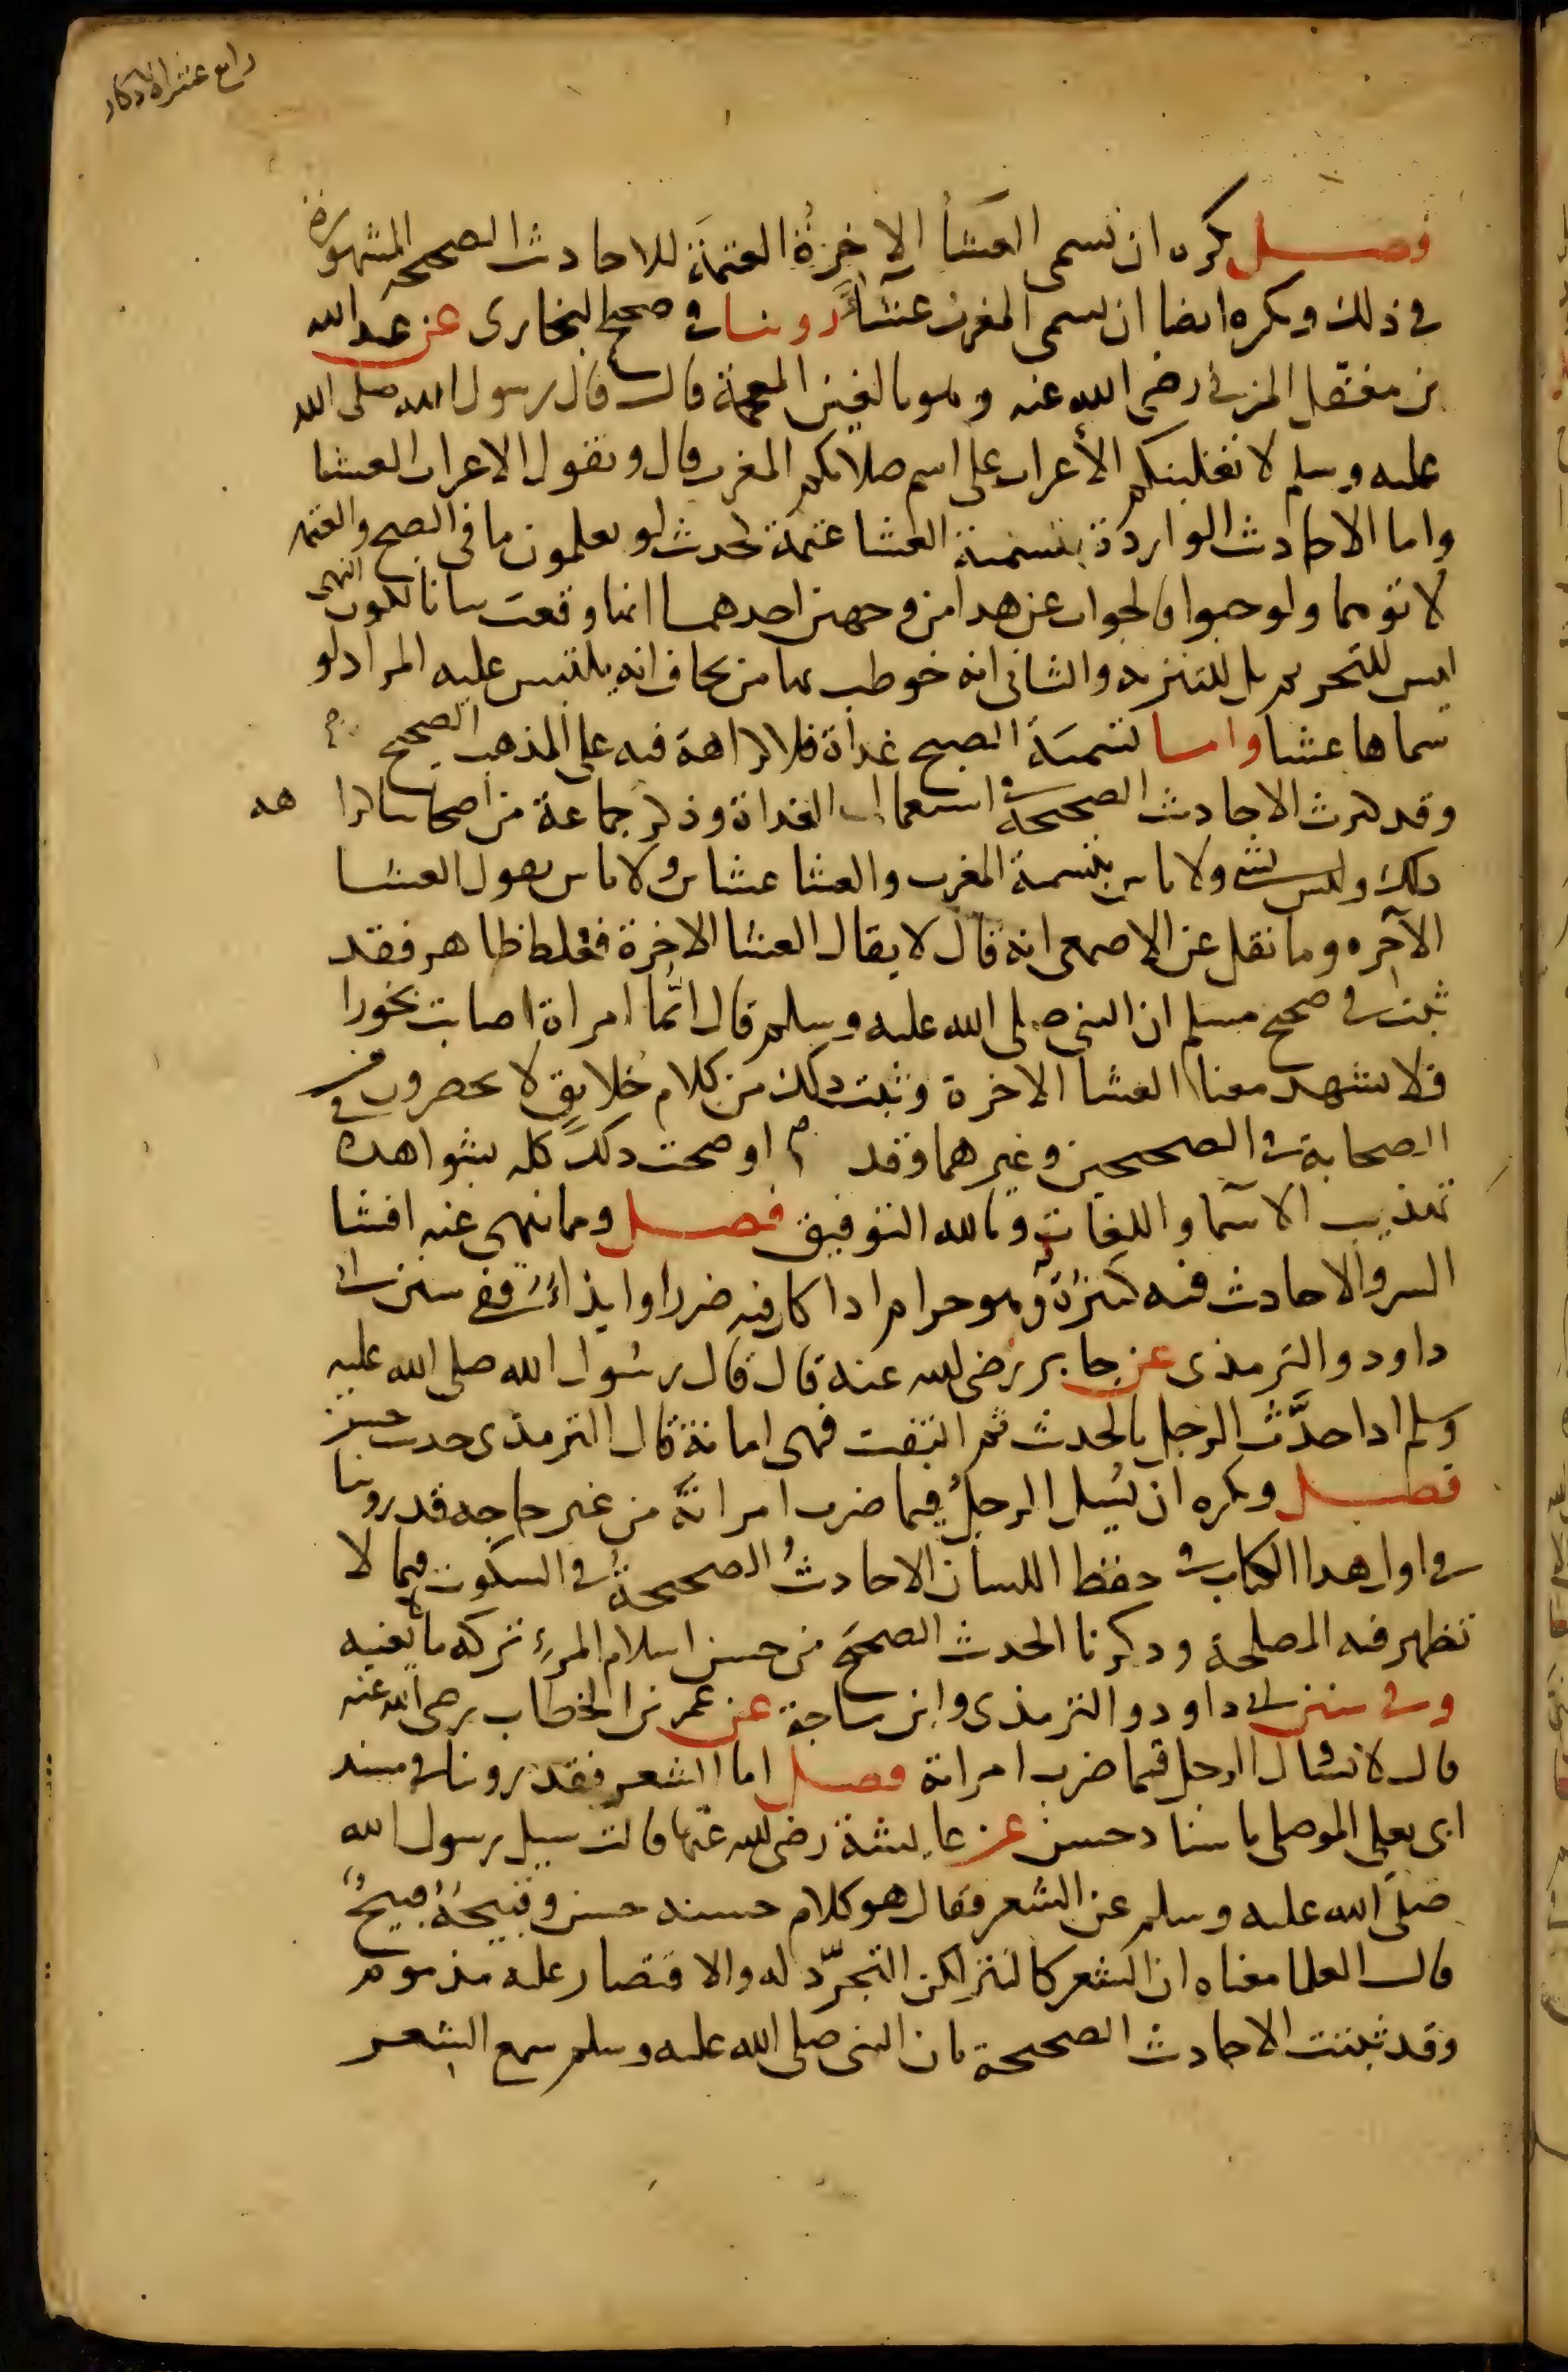 رابع عشر الاذكار
فصل يكره ان تسمى العشا الاخرة العتمة للاحاديث الصحيحة المشهورة
في ذلك ويكره ايضا ان تسمى المغرب عشاء روينا في صحيح البخارى عن عبد الله
بن مغفل المزني رضي الله عنه وهو بالغين المعجمة قال قال رسول الله صلى الله
عليه وسلم لا تغلبنكم الأعراب على اسم صلاتكم المغرب قال وتقول الاعراب العشا
واما الاحاديث الواردة بتسمية العشا عتمة لحديث لو يعلمون ما في الصبح والعتمه
لاتوهما ولو حبوا فالجواب عن هذا من وجهين احدهما انها وقعت بيانا لكون النهى
ليس للتحريم بل للتنزيه والثاني انه خوطب بها من يخاف انه يلتبس عليه المراد لو
سماها عشا واما تسمية الصبح غداة فلا كراهة فيه على المذهب الصحيح
وقد كثرت الاحاديث الصحيحة في استعمال الغداة وذكر جماعة من اصحابنا كرا هه
ذلك وليس بشي ولا باس بتسمية المغرب والعشا عشاين ولا باس بقول العشا
الآخره وما نقل عن الاصمعي انه قال لا يقال العشا الاخرة فغلط ظاهر فقد
ثبت في صحيح مسلم ان النبي صلى الله عليه وسلم قال ايّما امراة اصابت بخورا
فلا تشهد معنا العشا الاخرة وثبت ذلك من كلام خلايق لا يحصرون من
الصحابة في الصحيحين وغيرهما وقد اوضحت ذلك كله بشواهده في
تهذيب الاسما واللغات وبالله التوفيق فصل ومما ينهى عنه افشا
السر والاحاديث فيه كثيرة وهو حرام اذا كان فيه ضرر او ايذاء روينا في سنن ابي
داود والترمذى عن جابر رضي الله عنه قال قال رسول الله صلى الله عليه
وسلم اذا حدَّث الرجل بالحديث ثم التفت فهي امانة قال الترمذى حديث حسن
فصل ويكره ان يُسيل الرجلُ فيما ضرب امراتهُ من غير حاجه قد روينا
في اول هذا الكتاب في حفظ اللسان الاحاديثُ الصحيحةُ في السكوت فيما لا
تظهر فيه المصلحة وذكرنا الحديث الصحيح من حسن اسلام المرءِ تركه ما لا يعنيه
وفي سنن ابي داود والترمذى وابن ماجة عن عمر بن الخطاب رضي الله عنه
قال لا يسال الرجل فيما ضرب امراته فصل اما الشعر فقد روينا في مسند
ابي يعلى الموصلي باسناد حسن عن عايشة رضي الله عنها قالت سيل رسول الله
صلى الله عليه وسلم عن الشعر فقال هو كلام حسنه حسن وقبيحُهُ قبيحٌ
قال العلما معناه ان الشعر كالنثر لكن التجرّد له والاقتصار عليه مذموم
وقد ثبتت الاحاديث الصحيحة بان النبي صلى الله عليه وسلم سمع الشعر